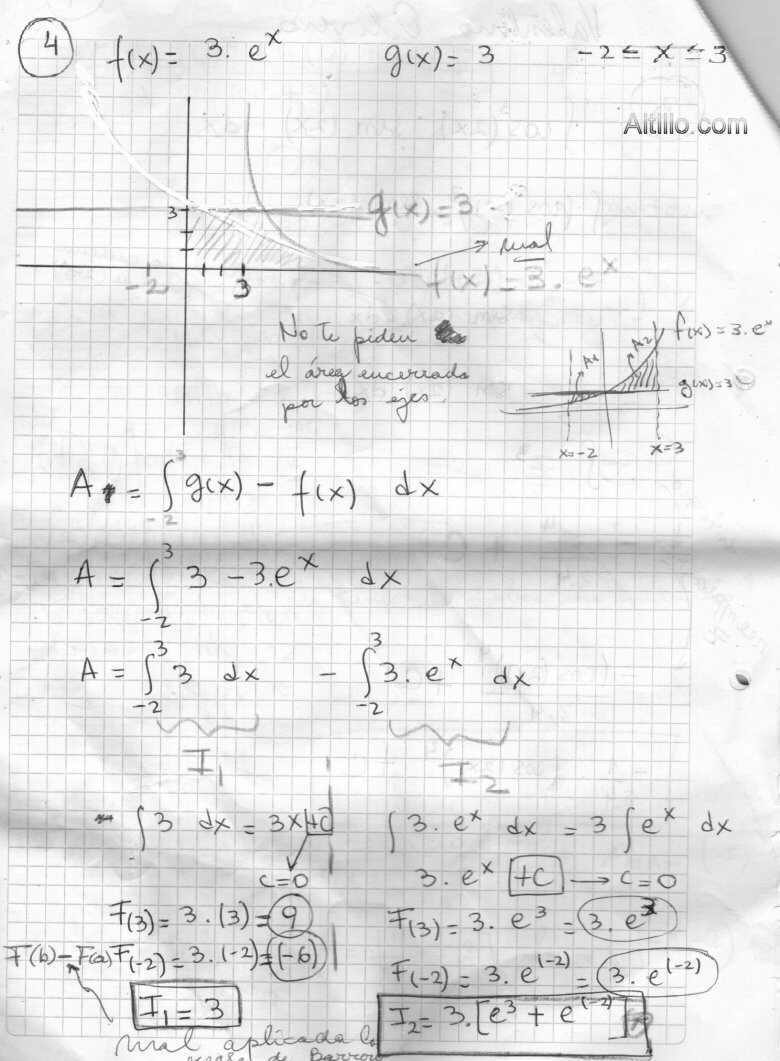 4 f(x) = 3. e^x g(x) = 3 -2 ≤ x ≤ 3
Altillo.com
3 g(x) = 3
mal
-2 3 f(x) = 3. e^x
No te piden
el área encerrada
por los ejes.
A1 A2 f(x) = 3. e^x
g(x) = 3
x=-2 x=3
A = ∫_{-2}^{3} g(x) - f(x) dx
A = ∫_{-2}^{3} 3 - 3.e^x dx
A = ∫_{-2}^{3} 3 dx - ∫_{-2}^{3} 3. e^x dx
I1 I2
∫ 3 dx = 3x +C
C=0
F(3) = 3. (3) = 9
F(b) - F(a) F(-2) = 3. (-2) = (-6)
I1 = 3
∫ 3. e^x dx = 3 ∫ e^x dx
3. e^x +C → C=0
F(3) = 3. e^3 = 3. e^3
F(-2) = 3. e^(-2) = 3. e^(-2)
I2 = 3. [e^3 + e^(-2)]
mal aplicada la
de Barrow